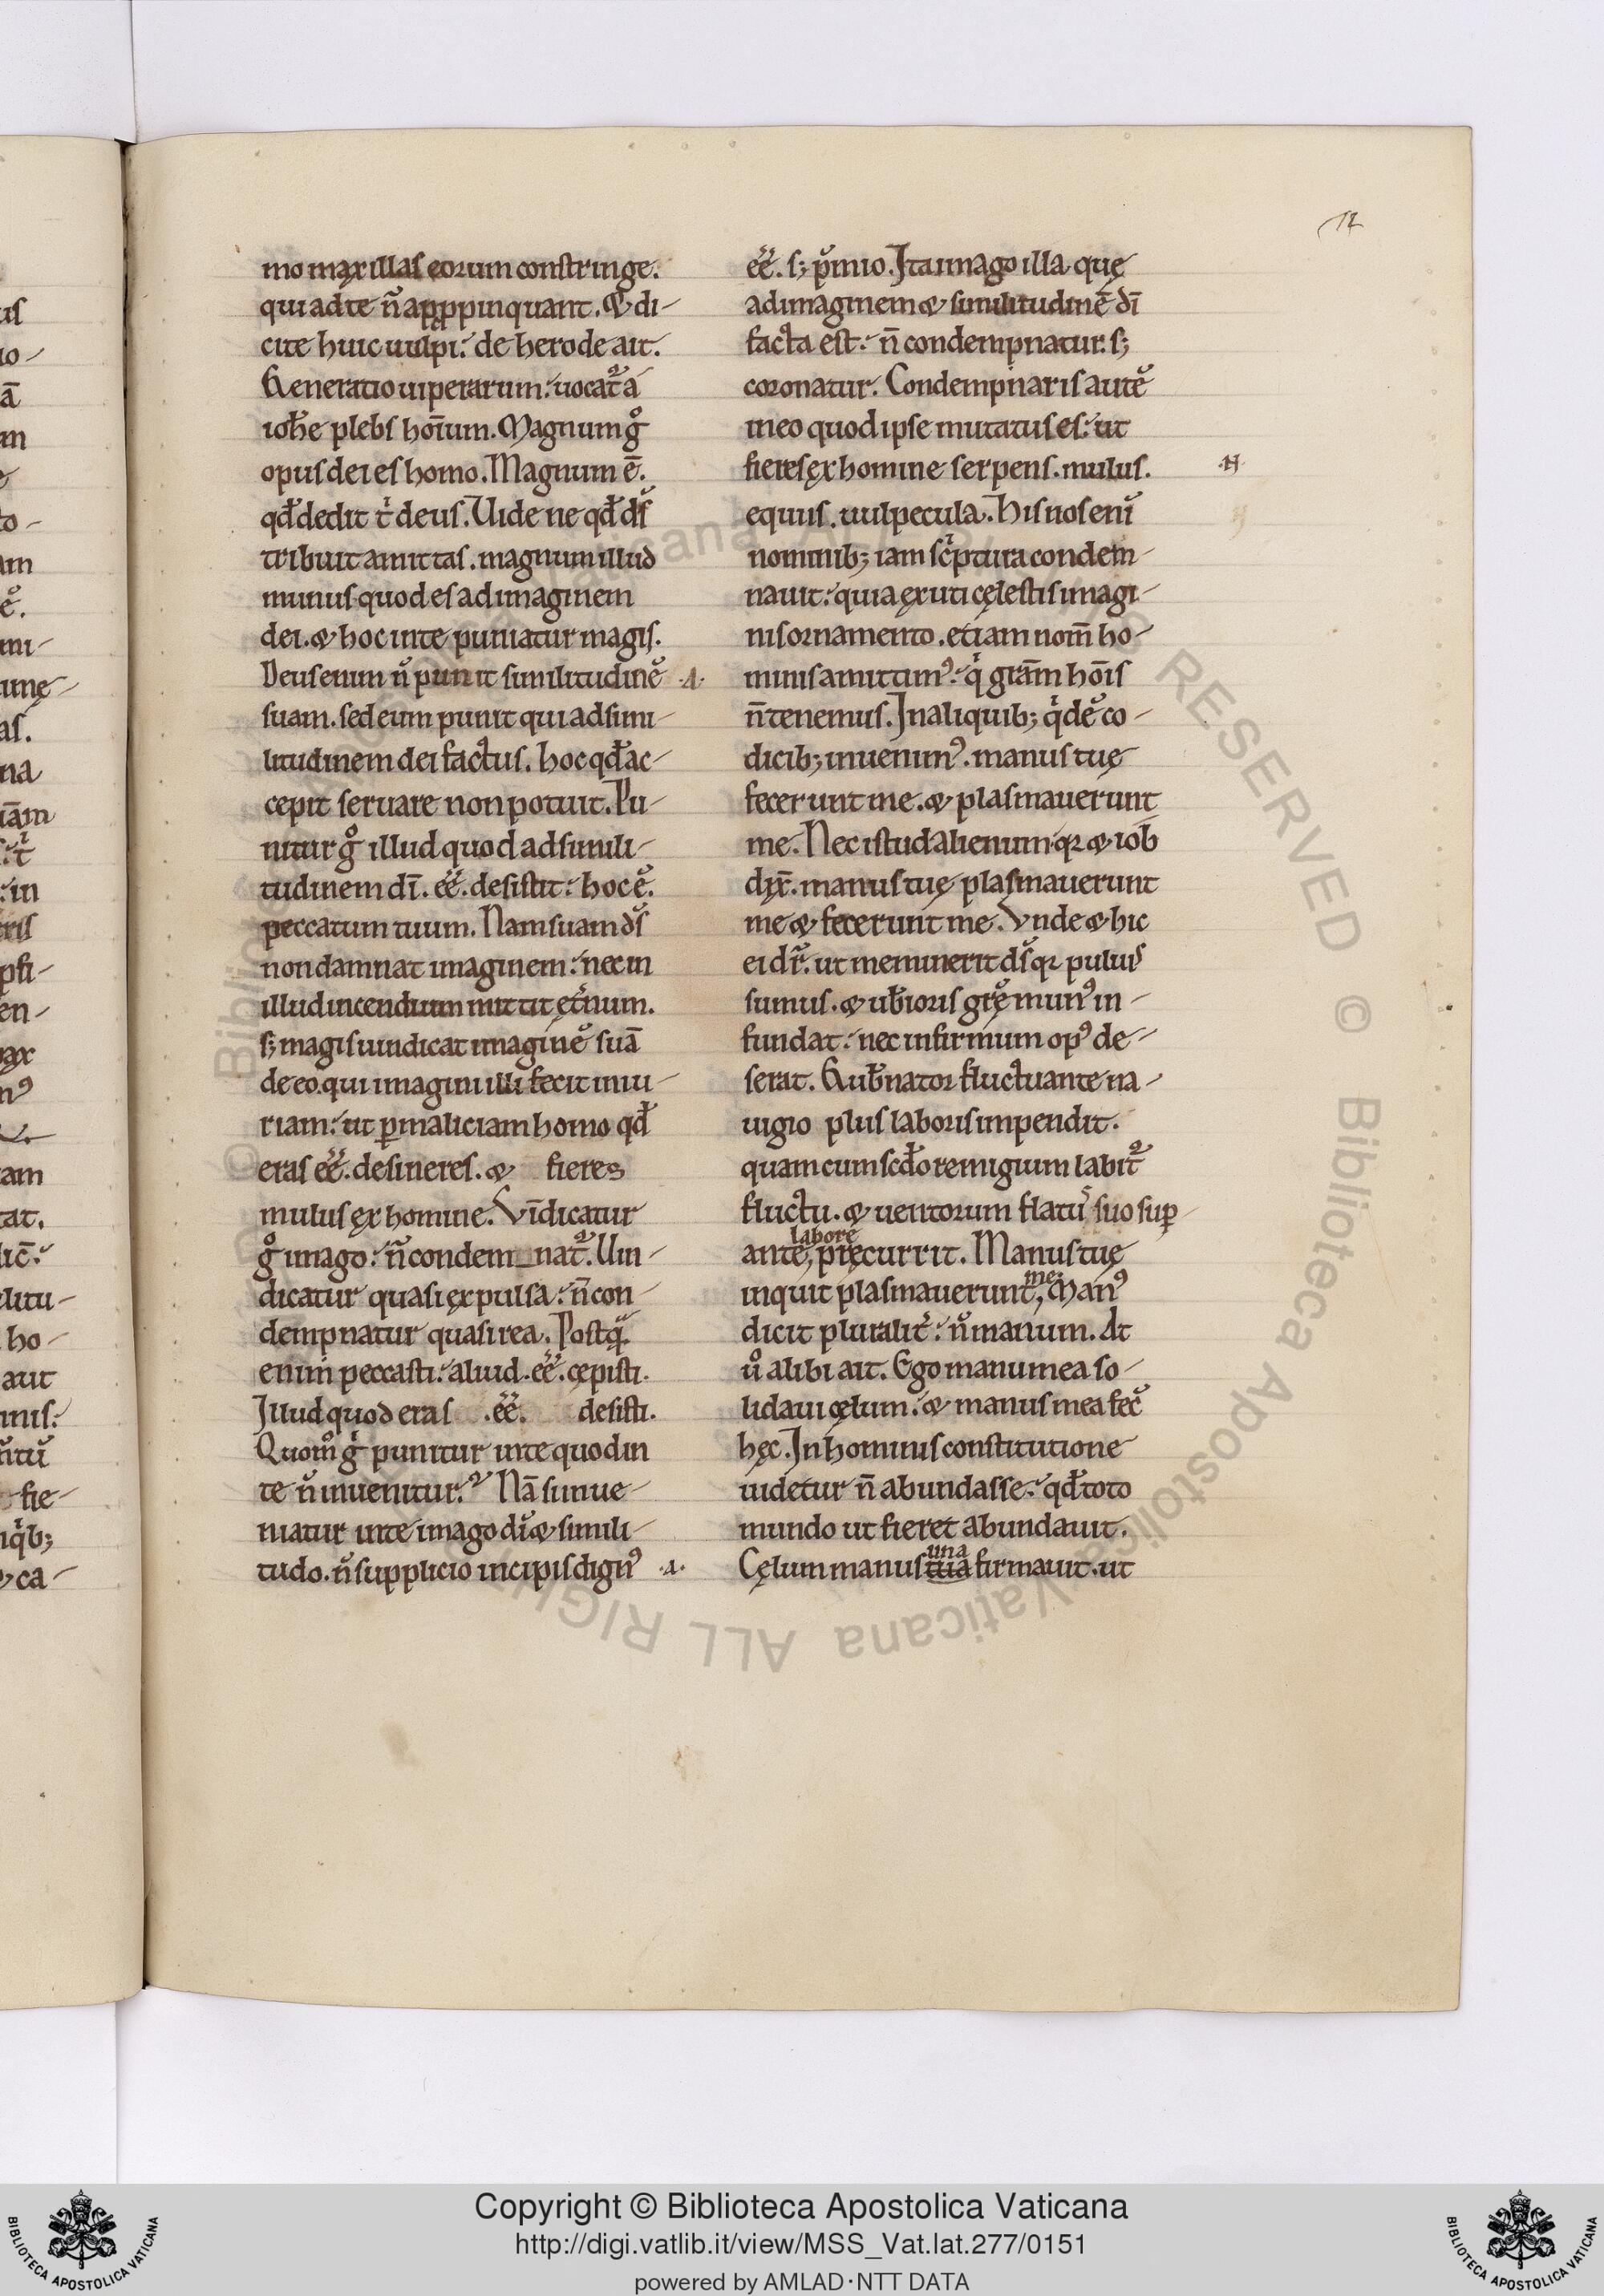 12
mo maxillas eorum constringe.
qui ad te n̄ apppinquant. & di-
cite huic uulpi: de herode ait.
Generatio uiperarum: uocat᷑ a
ioħe plebs hoīum. Magnum gͦ
opus dei es homo. Magnum ē.
qđ dedit tͥ deus. Uide ne qđ ds̄
tribuit amittas. magnum illud
munus quod es ad imaginem
dei. & hoc in te puniatur magis.
Deus enim n̄ punit similitudinē .A.
suam. sed eum punit qui ad simi-
litudinem dei factus. hoc qđ ac-
cepit seruare non potuit. Pu-
nitur gͦ illud quod ad simili-
tudinem dī. ēē. desistit: hoc ē.
peccatum tuum. Nam suam ds̄
non damnat imaginem: nec in
illud incendium mittit ęt̓num.
s; magis uindicat imaginē suā
de eo. qui imagini illi fecit iniu-
riam: ut ꝑ maliciam homo qđ
eras ēē. desineres. & fieres
mulus ex homine. Vīdicatur
gͦ imago: n̄ condem_nat᷑. Uin-
dicatur quasi expulsa: n̄ con-
dempnatur quasi rea. Postq̄
enim peccasti: aliud .ēē. cępisti.
Illud quod eras .ēē. desisti.
Quom̊ gͥ punitur in te quod in
te n̄ inuenitur? Nā si inue-
niatur in te imago dī & simili-
tudo. n̄ supplicio incipis dignꝰ .A.
ēē. s; p̄mio. Ita imago illa quę
ad imaginem & similitudinē dī
facta est: n̄ condempnatur. s;
coronatur. Condempnaris autē
in eo quod ipse mutatus es: ut
fieres ex homine serpens. mulus. .H.
equus. uulpecula. His nos enī
nominib; iam scͥptura condem-
nauit: quia exuti cęlestis imagi-
nis ornamento. etiam nom̄ ho-
minis amittimꝰ: qͥ grām hoīs
n̄ tenemus. In aliquib; qͥdē co-
dicib; inuenimꝰ. manus tuę
fecerunt me. & plasmauerunt
me. Nec istud alienum qꝛ & iob
dix̄. manus tuę plasmauerunt
me & fecerunt me. Vnde & hic
ei dr̄. ut meminerit ds̄ qꝛ puluis
sumus. & ub̓ioris grę munꝰ in-
fundat: nec infirmum opꝰ de-
serat. Gub̓nator fluctuante na-
uigio plus laboris impendit.
quam cum scđo remigium labit᷑
fluctu. & uentorum flatu suo suꝑ
labore
ante, pręcurrit. Manus tuę
me.
inquit plasmauerunt, Manꝰ
dicit pluralit̓: n̄ manum. At
uͦ alibi ait. Ego manu mea so-
lidaui cęlum: & manus mea fec̄
hęc. In hominis constitutione
uidetur n̄ abundasse: qđ toto
mundo ut fieret abundauit.
una
Cęlum manus tua firmauit. ut
Copyright © Biblioteca Apostolica Vaticana
http://digi.vatlib.it/view/MSS_Vat.lat.277/0151
powered by AMLAD·NTT DATA
BIBLIOTECA APOSTOLICA VATICANA
BIBLIOTECA APOSTOLICA VATICANA